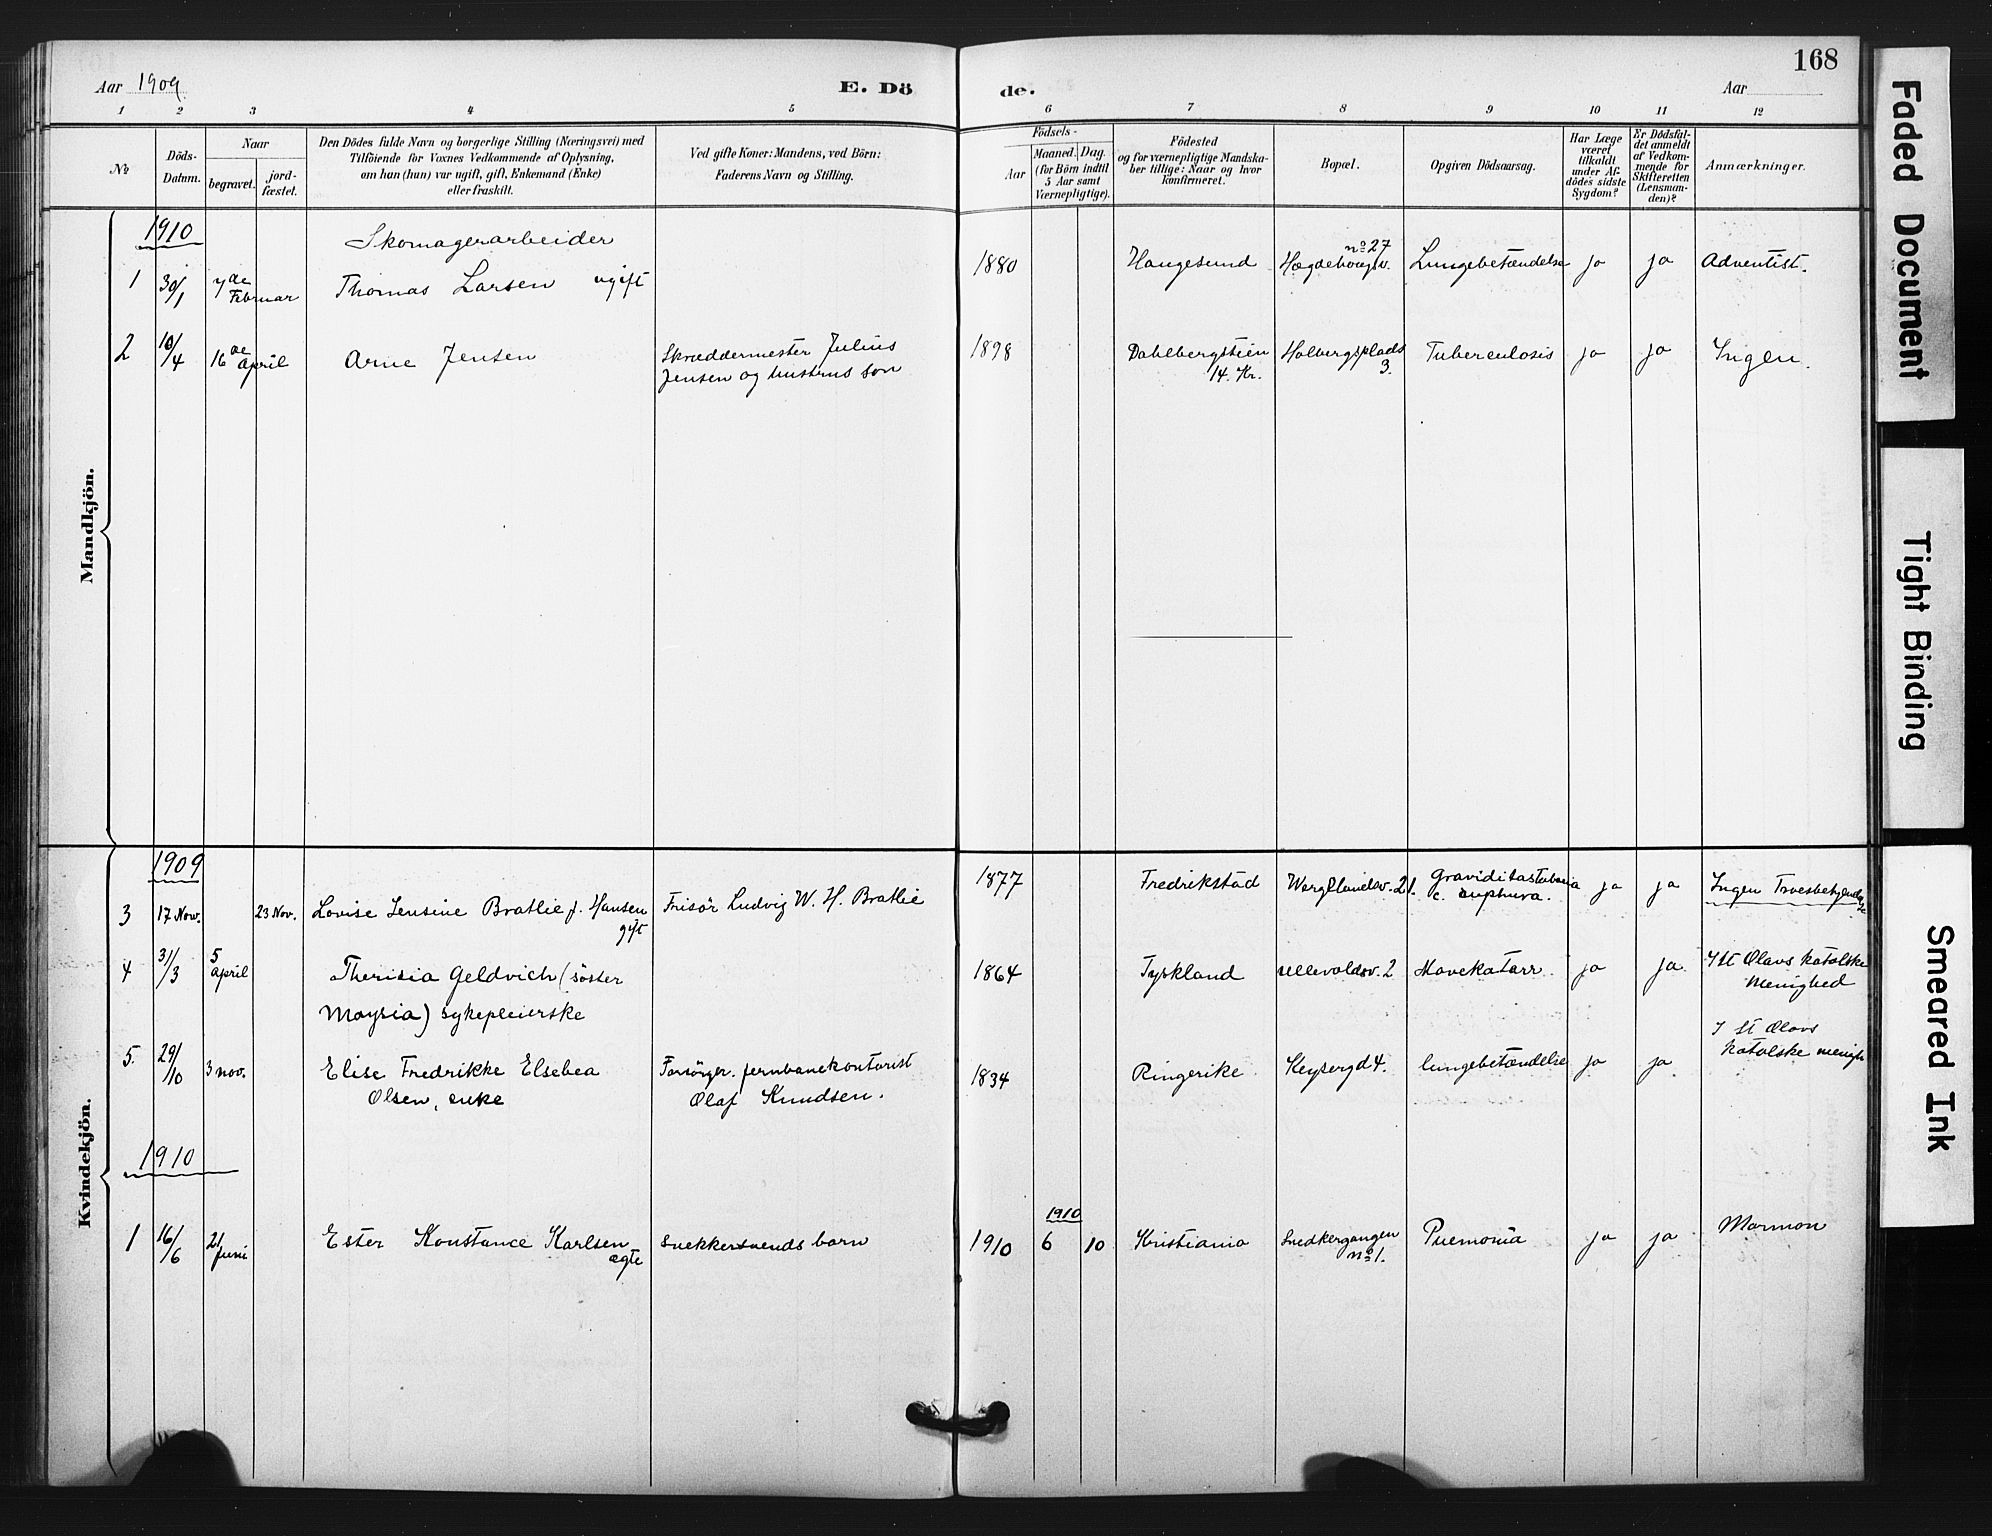 168
Aar 1909
E. Dö
de.
Aar
1 2 3 4 5 6 7 8 9 10 11 12
No
Döds-
Datum.
Naar
begravet.
jord-
fæstet.
Den Dödes fulde Navn og borgerlige Stilling (Næringsvei) med
Tilföiende for Voxnes Vedkommende af Oplysning,
om han (hun) var ugift, gift, Enkemand (Enke)
eller fraskilt.
Ved gifte Koner: Mandens, ved Börn:
Faderens Navn og Stilling.
Födsels-
Aar
Maaned. Dag.
(for Börn indtil
5 Aar samt
Værnepligtige).
Födested
og for værnepligtige Mandska-
ber tillige: Naar og hvor
konfirmeret.
Bopæl.
Opgiven Dödsaarsag.
Har Læge
været
tilkaldt
under Af-
dödes sidste
Sygdom?
Er Dödsfal-
det anmeldt
af Vedkom-
mende for
Skifteretten
(Lensman-
den)?
Anmærkninger.
Mandkjön.
1910
Skomagerarbeider
1 30/1 7de Februar Thomas Larsen ugift 1880 Haugesund Hægdehougsv. no 27 Lungebetændelse ja ja Adventist.
2 10/4 16de April Arne Jensen Skræddermester Julius
Jensen og hustrus søn 1898 Dahlbergstien
14. Kr. Holbergsplads
3. Tuberculosis ja ja Ingen.
Kvindekjön.
1909
3 17 Nov. 23 Nov. Lovise Jensine Bratlie f. Hansen
gift Frisör Ludvig W. H. Bratlie 1877 Fredrikstad Wergelandsv. 21. Graviditas tubaria
c. ja ja Ingen Troesbekjendelse
4 31/3 5 April Therisia Geldvich (söster
Maysia) sykepleierske 1864 Tyskland Ullevoldsv. 2 Mavekatarr. ja ja. I St Olavs katolske
Menighed
5. 29/10 3 nov. Elise Fredrikke Elsebea
Olsen, enke Forsörger. jernbanekontorist
Olaf Knudsen. 1834 Ringerike Keysergd 4. lungebetændelse ja ja I St Olavs
katolske menigh
1910
1 16/6 21 Juni Ester Konstance Karlsen
ægte Snekkersvends barn 1910 1910
6 10 Kristiania Snedkergangen
no 1. Pnemonia ja ja Mormon
Faded Document
Tight Binding
Smeared Ink